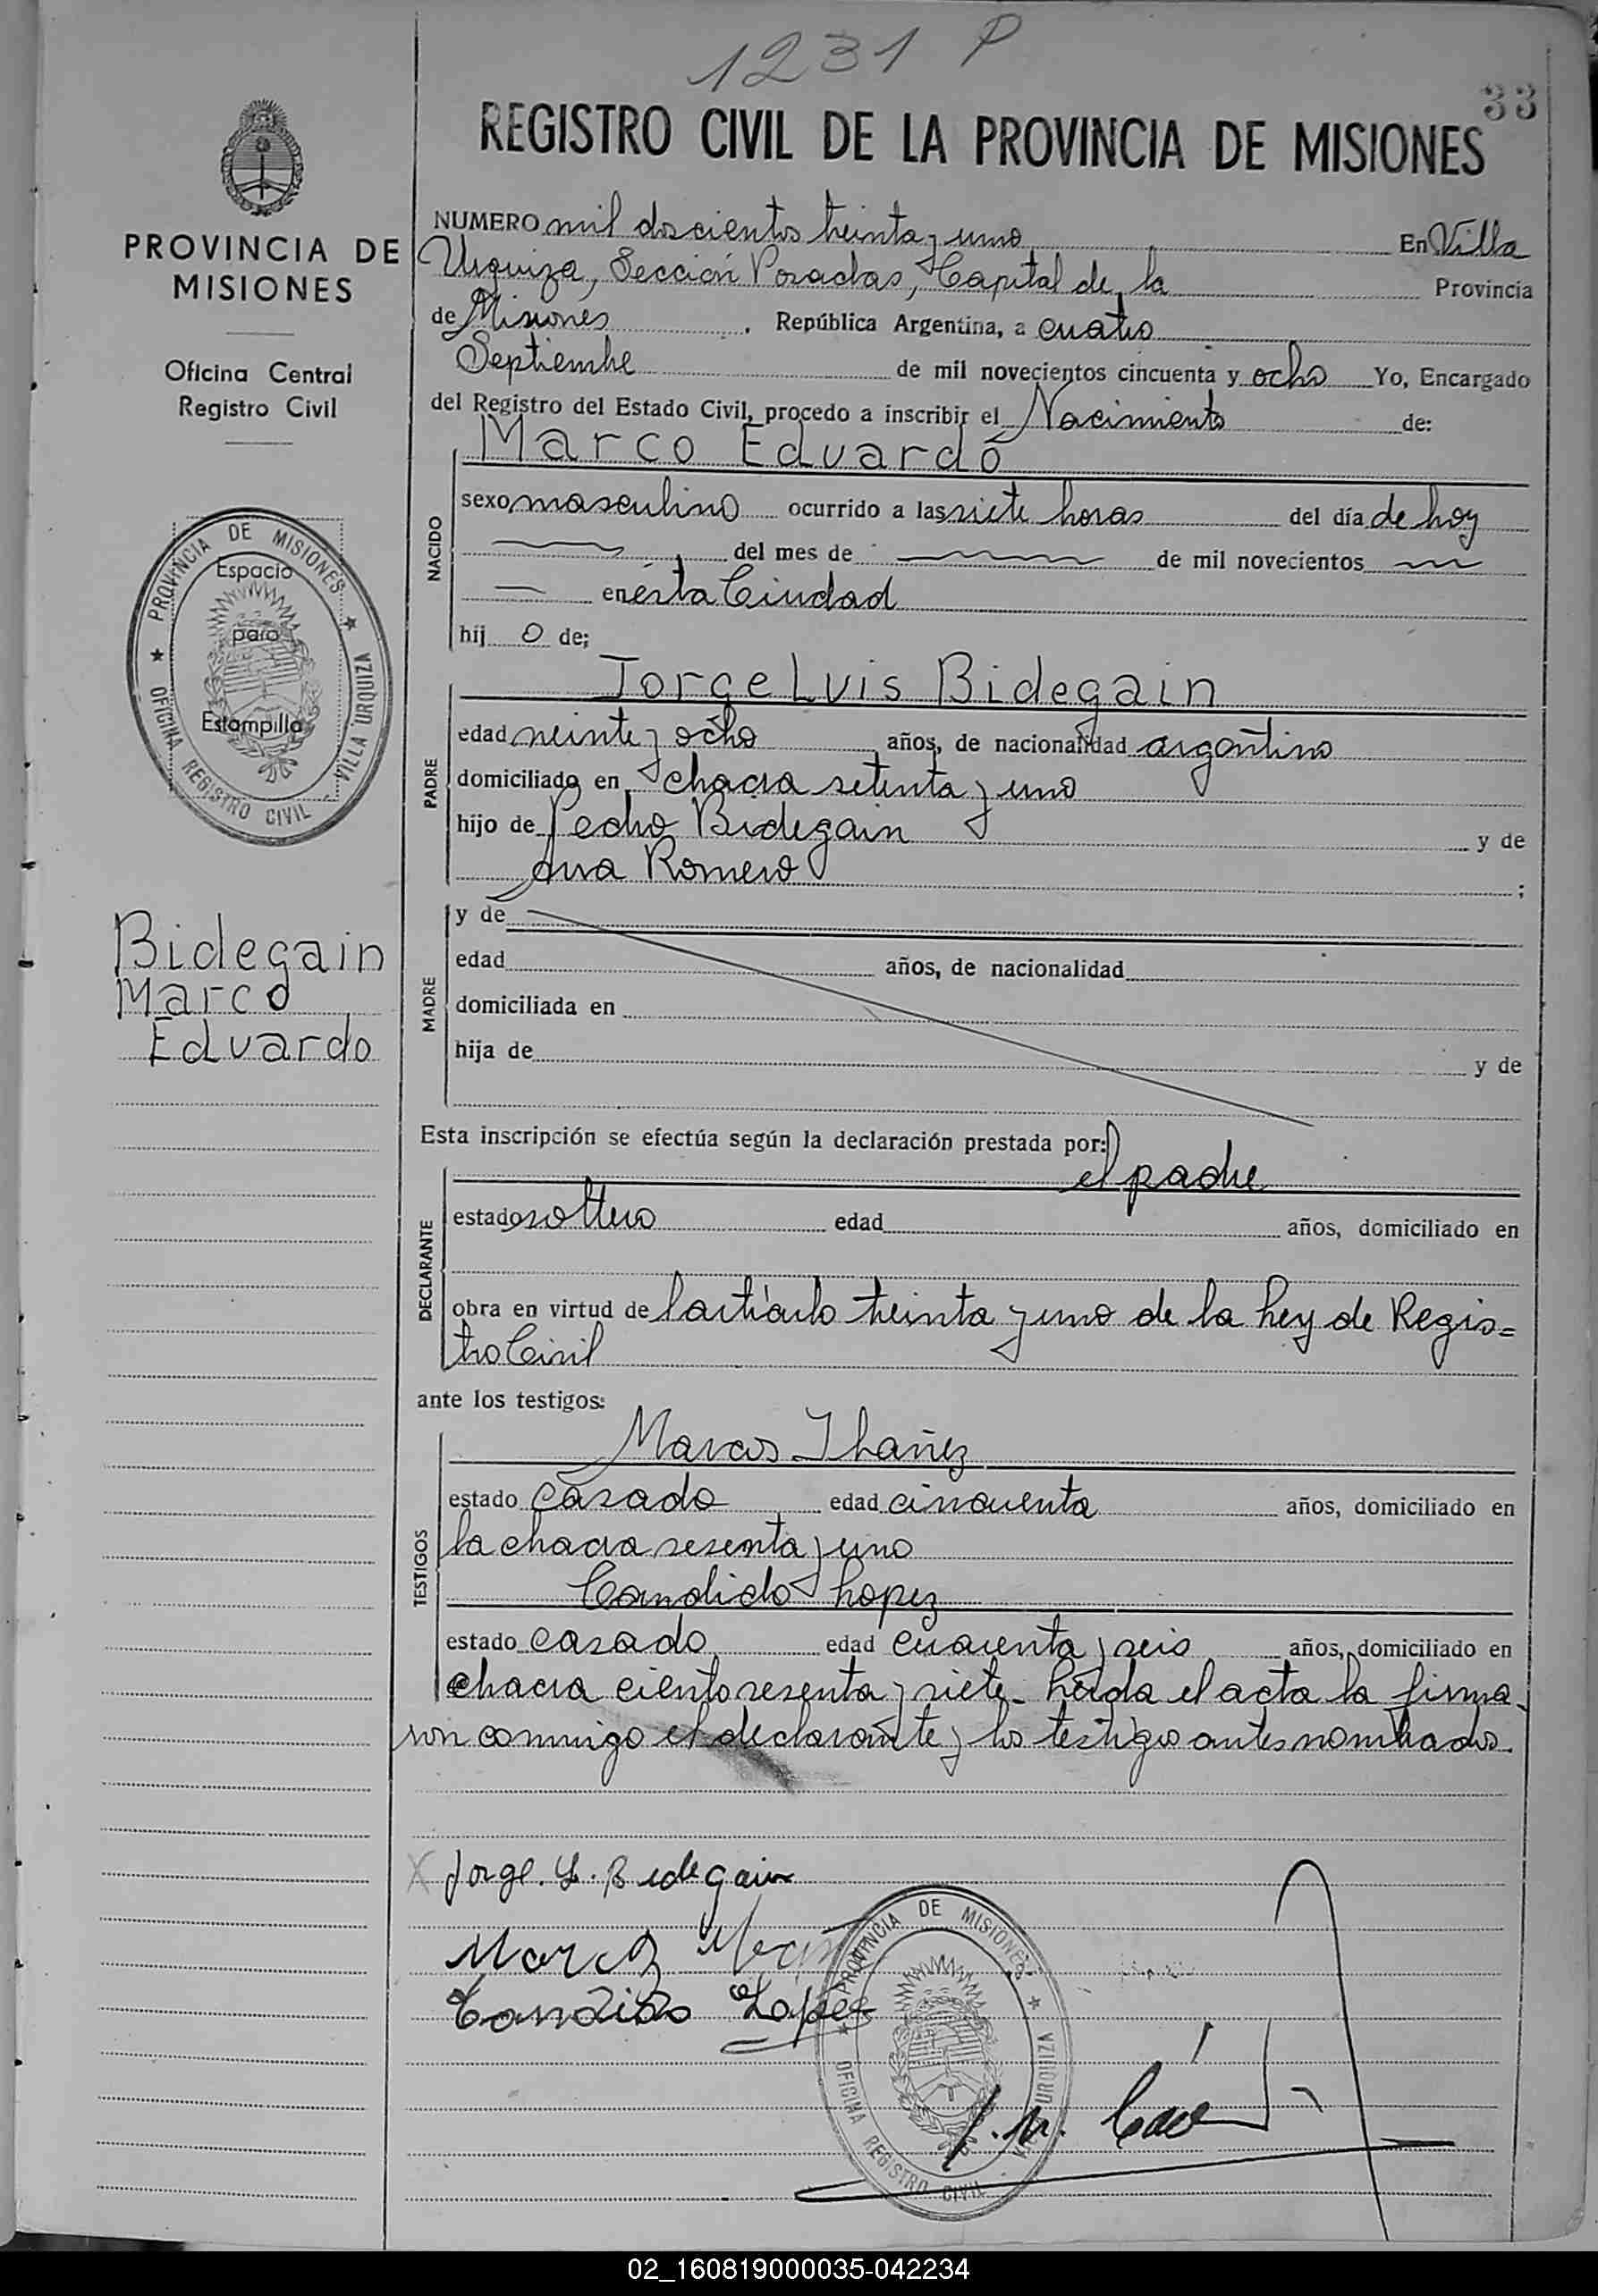 1231 P
33
REGISTRO CIVIL DE LA PROVINCIA DE MISIONES
PROVINCIA DE
MISIONES
Oficina Central
Registro Civil
PROVINCIA DE MISIONES
OFICINA REGISTRO CIVIL - VILLA URQUIZA
Espacio
para
Estampilla
Bidegain
Marco
Eduardo
NUMERO mil doscientos treinta y uno En Villa
Urquiza, Sección Posadas, Capital de la Provincia
de Misiones. República Argentina, a cuatro
Septiembre de mil novecientos cincuenta y ocho Yo, Encargado
del Registro del Estado Civil, procedo a inscribir el Nacimiento de:
NACIDO
Marco Eduardo
sexo masculino ocurrido a las siete horas del día de hoy
del mes de de mil novecientos
en ésta Ciudad
hij o de;
PADRE
Jorge Luis Bidegain
edad veinte y ocho años, de nacionalidad argentino
domiciliado en chacra setenta y uno
hijo de Pedro Bidegain y de
Ana Romero ;
MADRE
y de
edad años, de nacionalidad
domiciliada en
hija de y de
Esta inscripción se efectúa según la declaración prestada por:
DECLARANTE
el padre
estado soltero edad años, domiciliado en
obra en virtud de l artículo treinta y uno de la Ley de Regis=
tro Civil
ante los testigos:
TESTIGOS
Marcos Ibañez
estado casado edad cincuenta años, domiciliado en
la chacra sesenta y uno
Candido Lopez
estado casado edad cuarenta y seis años, domiciliado en
chacra ciento sesenta y siete. Leída el acta la firma
ron conmigo el declarante y los testigos antes nombrados.
X Jorge. L. Bidegain
Marcos
Candido Lopez
PROVINCIA DE MISIONES
OFICINA REGISTRO CIVIL URQUIZA
02_160819000035-042234